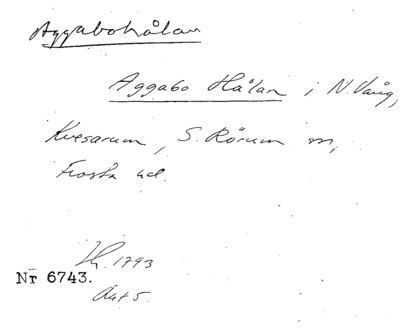 Aggabohålan
Aggabo Hålan i N. Vång,
Kvesarum, S. Rörum sn,
Frosta hd.
1793
Nr 6743.
Akt 5.